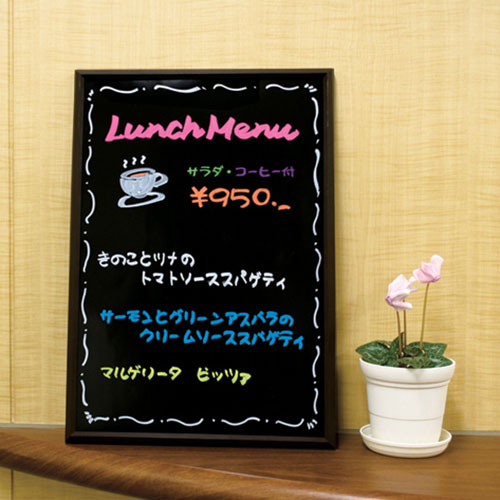 Lunch Menu
サラダ・コーヒー付
¥950.-
きのことツナの
トマトソーススパゲティ
サーモンとグリーンアスパラの
クリームソーススパゲティ
マルゲリータ ピッツァ